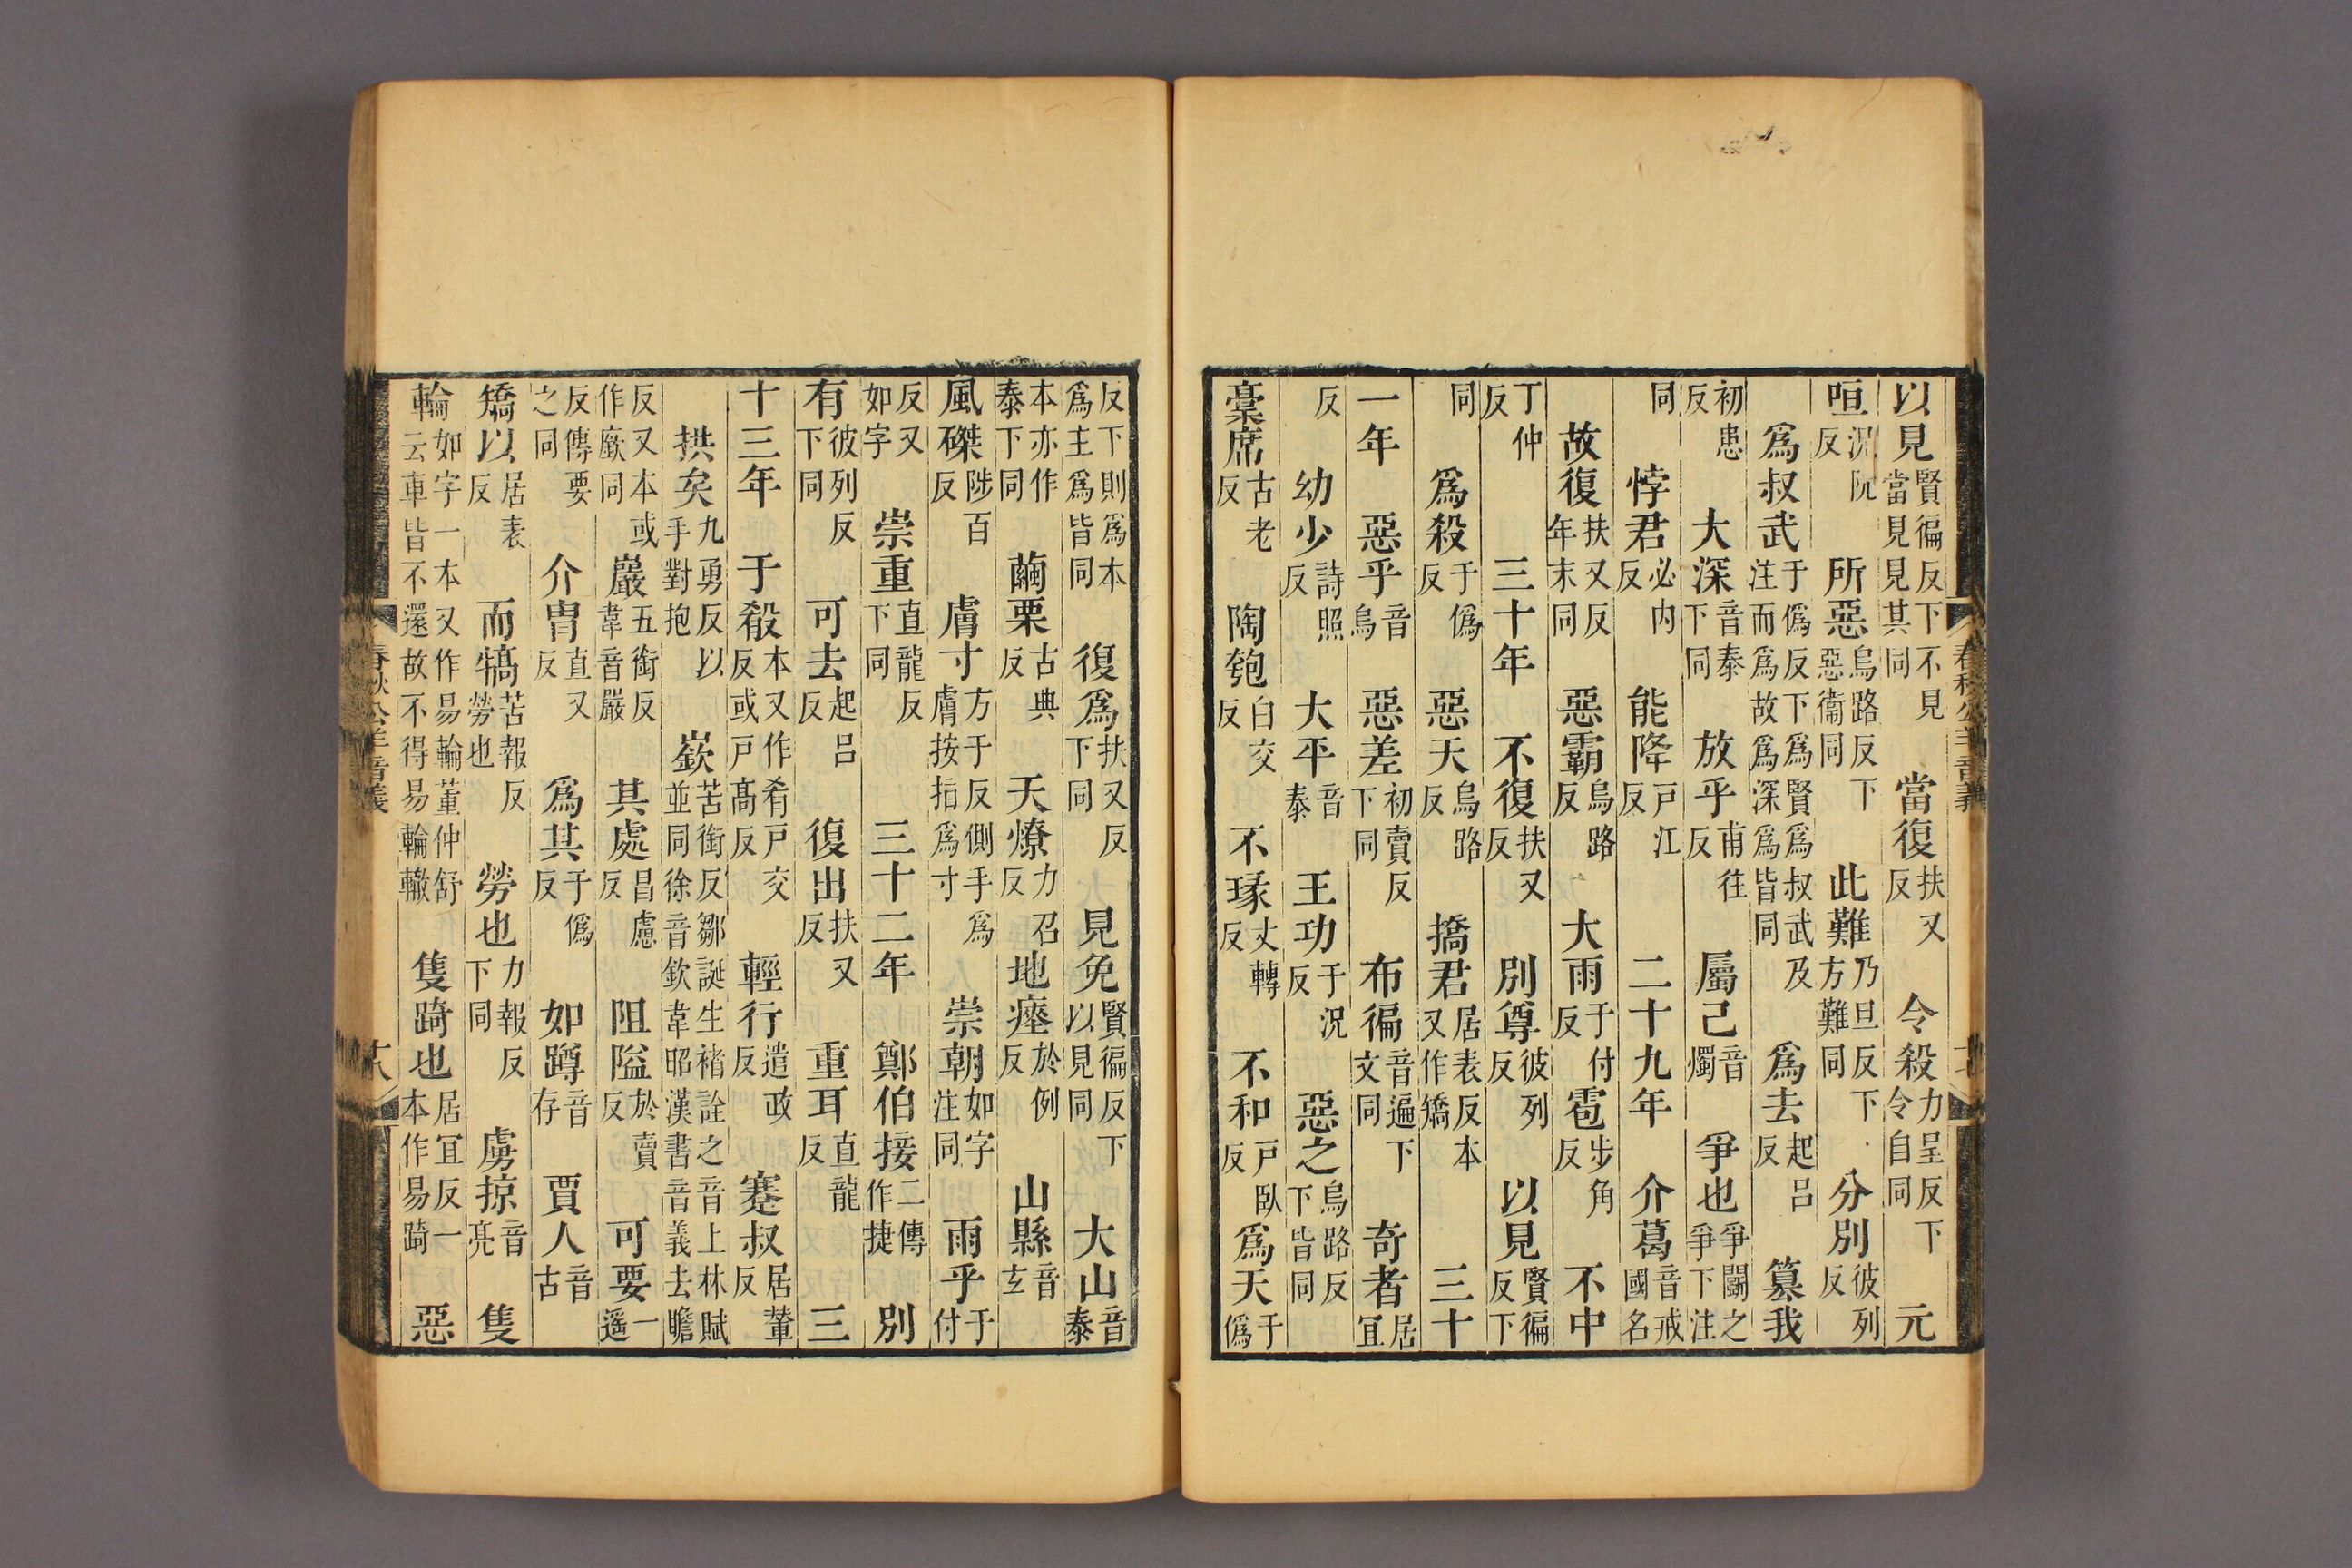 以見賢徧反下不見當見見其同 當復扶又反 令殺力呈反下令自同 元
咺況阮反 所惡烏路反下惡衞同 此難乃旦反下方難同 分別彼列反
爲叔武于僞反下爲賢爲叔武及注而爲故爲深爲皆同 爲去起呂反 簒我
初患反 大深音泰下同 放乎甫往反 屬己音燭 爭也爭鬭之爭下注
同 悖君必内反 能降戸江反 二十九年 介葛音戒國名
故復扶又反年末同 惡霸烏路反 大雨于付反 雹步角反 不中
丁仲反 三十年 不復扶又反 別尊彼列反 以見賢徧反下
同 爲殺于僞反 惡天烏路反 撟君居表反本又作矯 三十
一年 惡乎音烏 惡差初賣反下同 布徧音遍下文同 奇者居宜
反 幼少詩照反 大平音泰 王功于況反 惡之烏路反下皆同
稾席古老反 陶匏白交反 不瑑丈轉反 不和戸臥反 爲天于僞
春秋公羊音義
反下則爲本爲主爲皆同 復爲扶又反下同 見免賢徧反下以見同 大山音泰
本亦作泰下同 繭栗古典反 天燎力召反 地瘞於例反 山縣音玄
風磔陟百反 膚寸方于反側手爲膚按指爲寸 崇朝如字注同 雨乎于付
反又如字 崇重直龍反下同 三十二年 鄭伯接二傳作捷 別
有彼列反下同 可去起呂反 復出扶又反 重耳直龍反 三
十三年 于殽本又作肴戸交反或戸髙反 輕行遣政反 蹇叔居輦反
拱矣九勇反以手對抱 嶔苦銜反鄒誕生褚詮之音上林賦並同徐音欽韋昭漢書音義去瞻
反又本或作廞同 巖五銜反韋音嚴 其處昌慮反 阻隘於賣反 可要一遥
反傳要之同 介胄直又反 爲其于僞反 如蹲音存 賈人音古
矯以居表反 而犒苦報反勞也 勞也力報反下同 虜掠音亮 隻
輪如字一本又作易輪董仲舒云車皆不還故不得易輪轍 隻踦也居宜反一本作易踦 惡
春秋公羊音義 十八